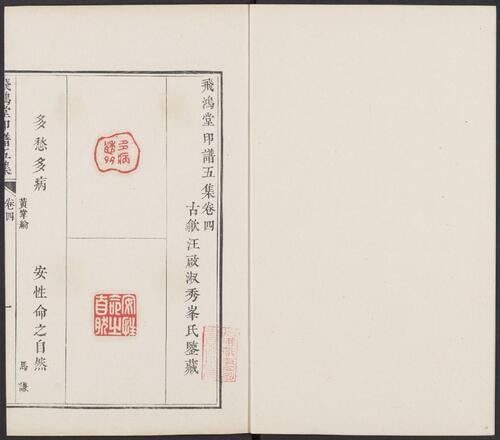 飛鴻堂印譜五集卷四
古歙汪啟淑秀峯氏鑒藏
多愁多病
安性命之自然
馬謙
飛鴻堂印譜五集
卷四
一